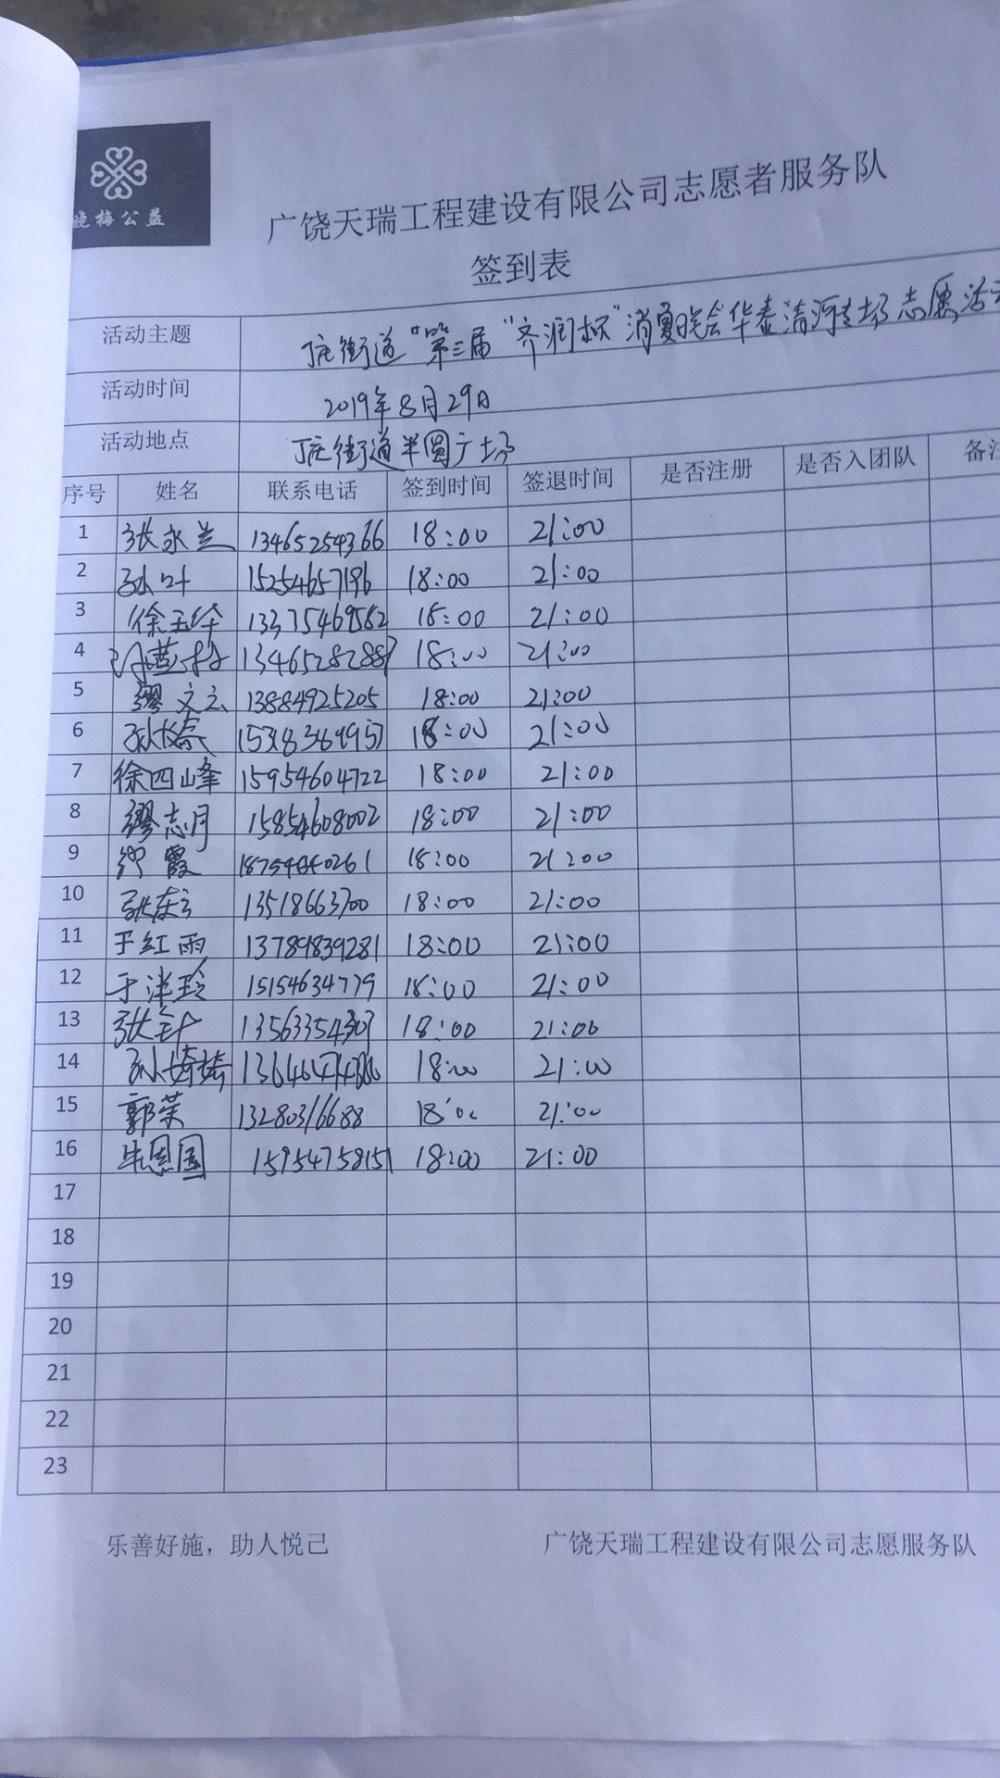 晓梅公益
广饶天瑞工程建设有限公司志愿者服务队
签到表
活动主题 丁庄街道"第三届"齐润杯"消夏晚会华泰清河专场志愿活动
活动时间 2019年8月29日
活动地点 丁庄街道半圆广场
序号 姓名 联系电话 签到时间 签退时间 是否注册 是否入团队 备注
1 张永兰 13465254366 18:00 21:00
2 孙叶 15254657196 18:00 21:00
3 徐玉华 13375469582 18:00 21:00
4 13465282887 18:00 21:00
5 缪文云 13884925205 18:00 21:00
6 18:00 21:00
7 徐四峰 15954604722 18:00 21:00
8 缪志月 15854608002 18:00 21:00
9 霞 18:00 21:00
10 13518663700 18:00 21:00
11 于红雨 13789839281 18:00 21:00
12 于洋玲 15154634779 18:00 21:00
13 18:00 21:00
14 孙婷婷 18:00 21:00
15 郭荣 13280316688 18:00 21:00
16 牛恩国 15954758151 18:00 21:00
17
18
19
20
21
22
23
乐善好施，助人悦己 广饶天瑞工程建设有限公司志愿服务队